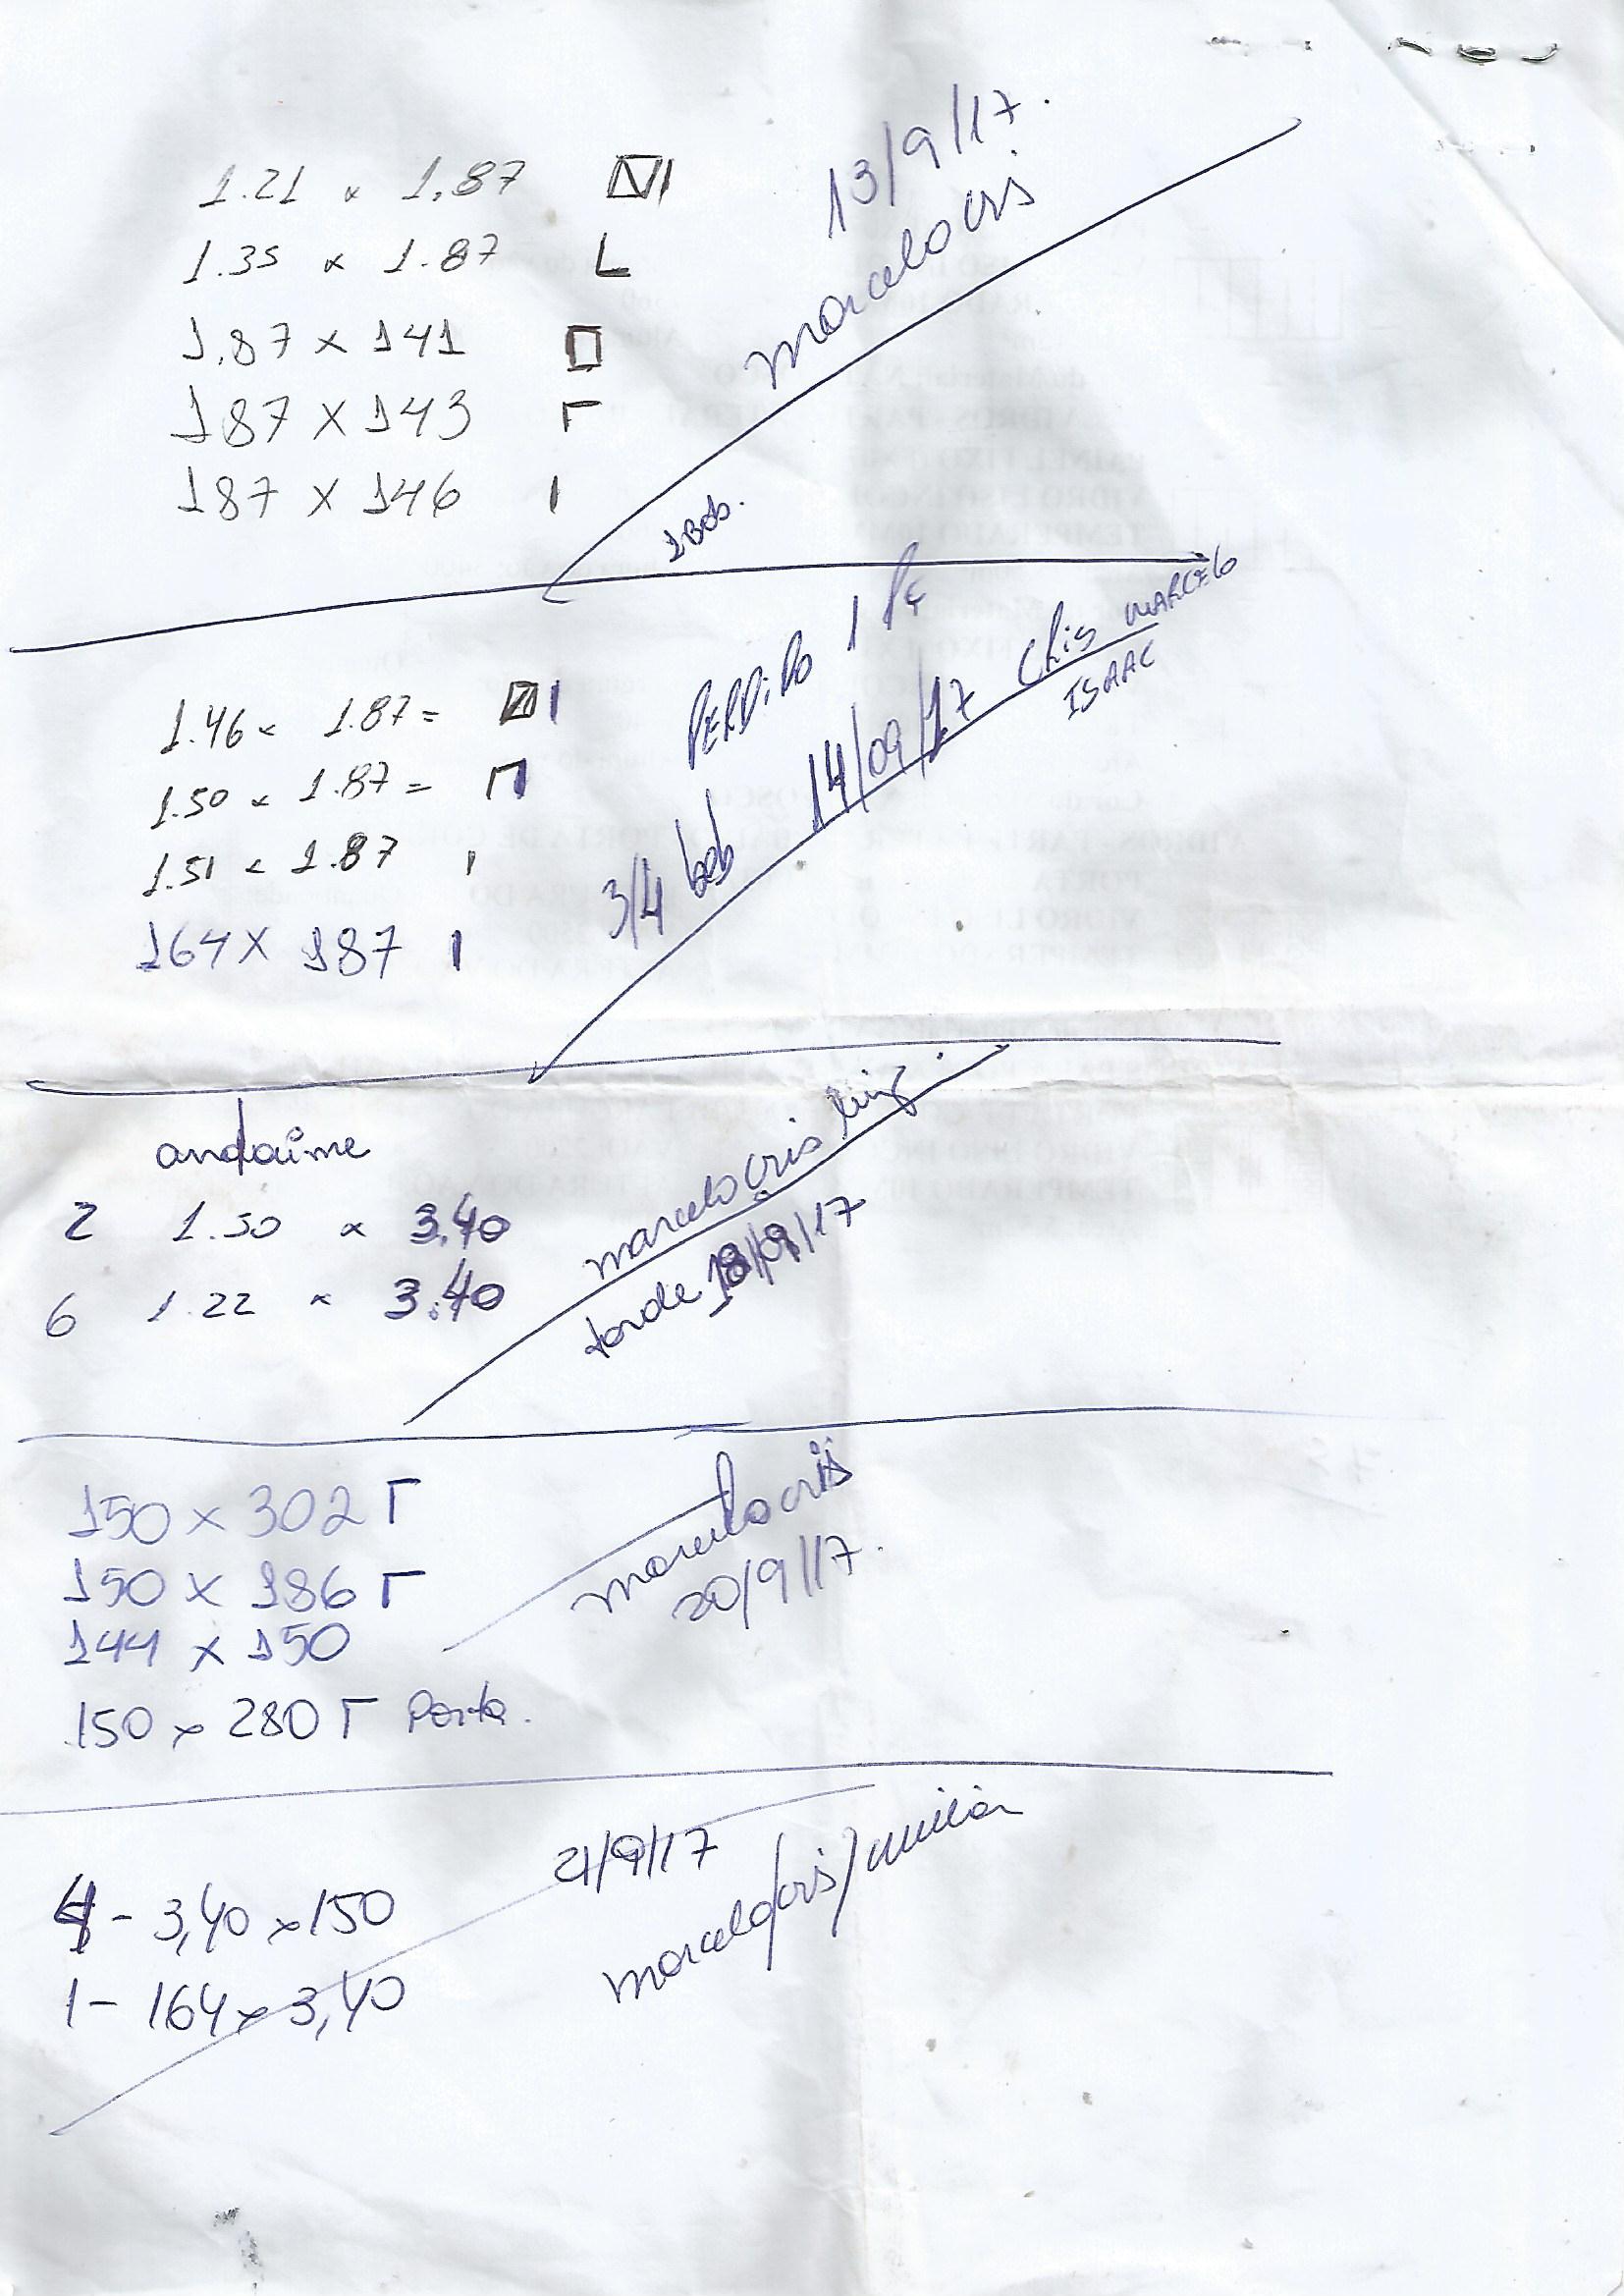 13/9/17.
marcelo cris
1.21 x 1.87
1.35 x 1.87
1.87 x 141
187 x 143
187 x 146
1 Bob.
PERDIDO 1 Pç
1.46 x 1.87 =
1.50 x 1.87 =
1.51 x 1.87
164 x 187
3/4 bob 14/09/17 Chis MARCELO
ISAAC
andaime
2 1.50 x 3,40
6 1.22 x 3.40
marcelo cris
tarde 18/09/17
150 x 302
150 x 186
144 x 150
150 x 280 Porta.
marcelo cris
20/9/17.
21/9/17
marcelo/cris/
4 - 3,40 x 150
1 - 164 x 3,40